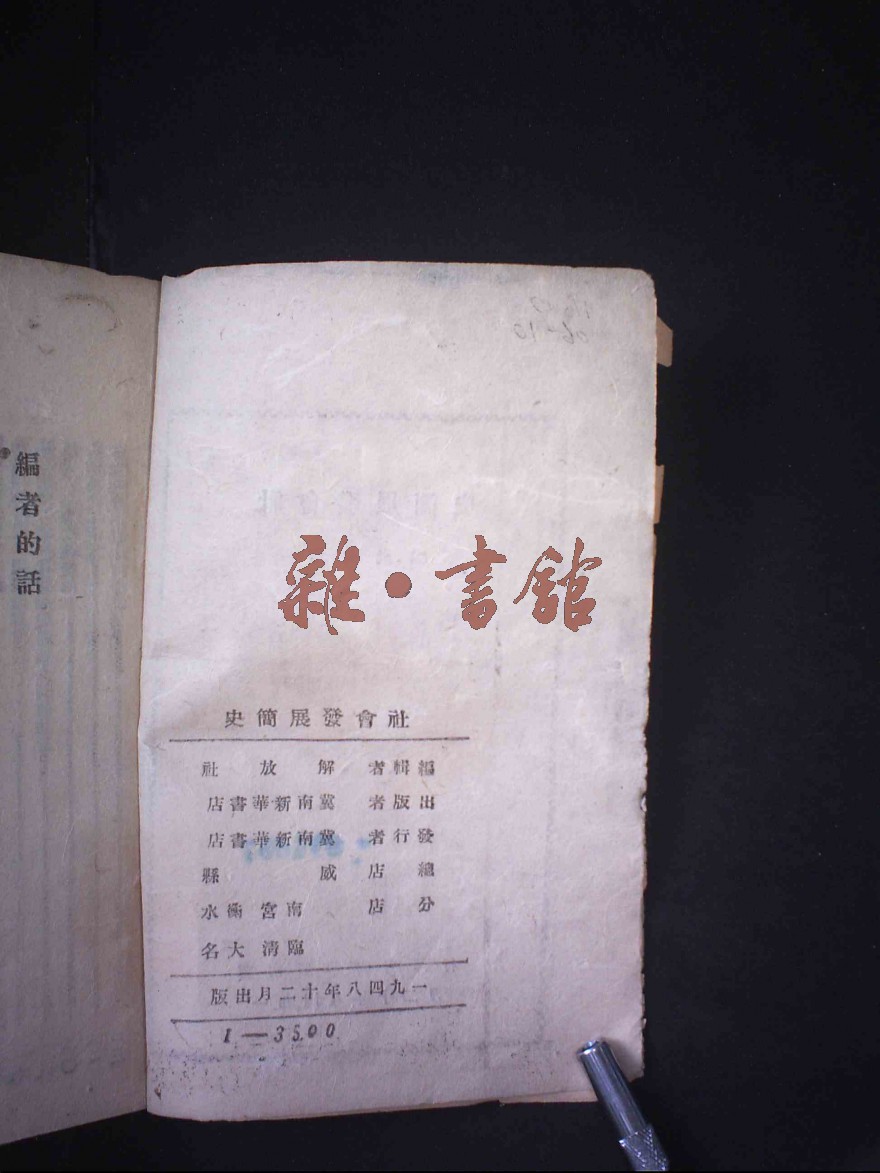 雜·書館
社會發展簡史
編輯者 解放社
出版者 冀南新華書店
發行者 冀南新華書店
總店 威縣
分店 南宮 衡水
臨清 大名
一九四八年十二月出版
1—3500
編者的話